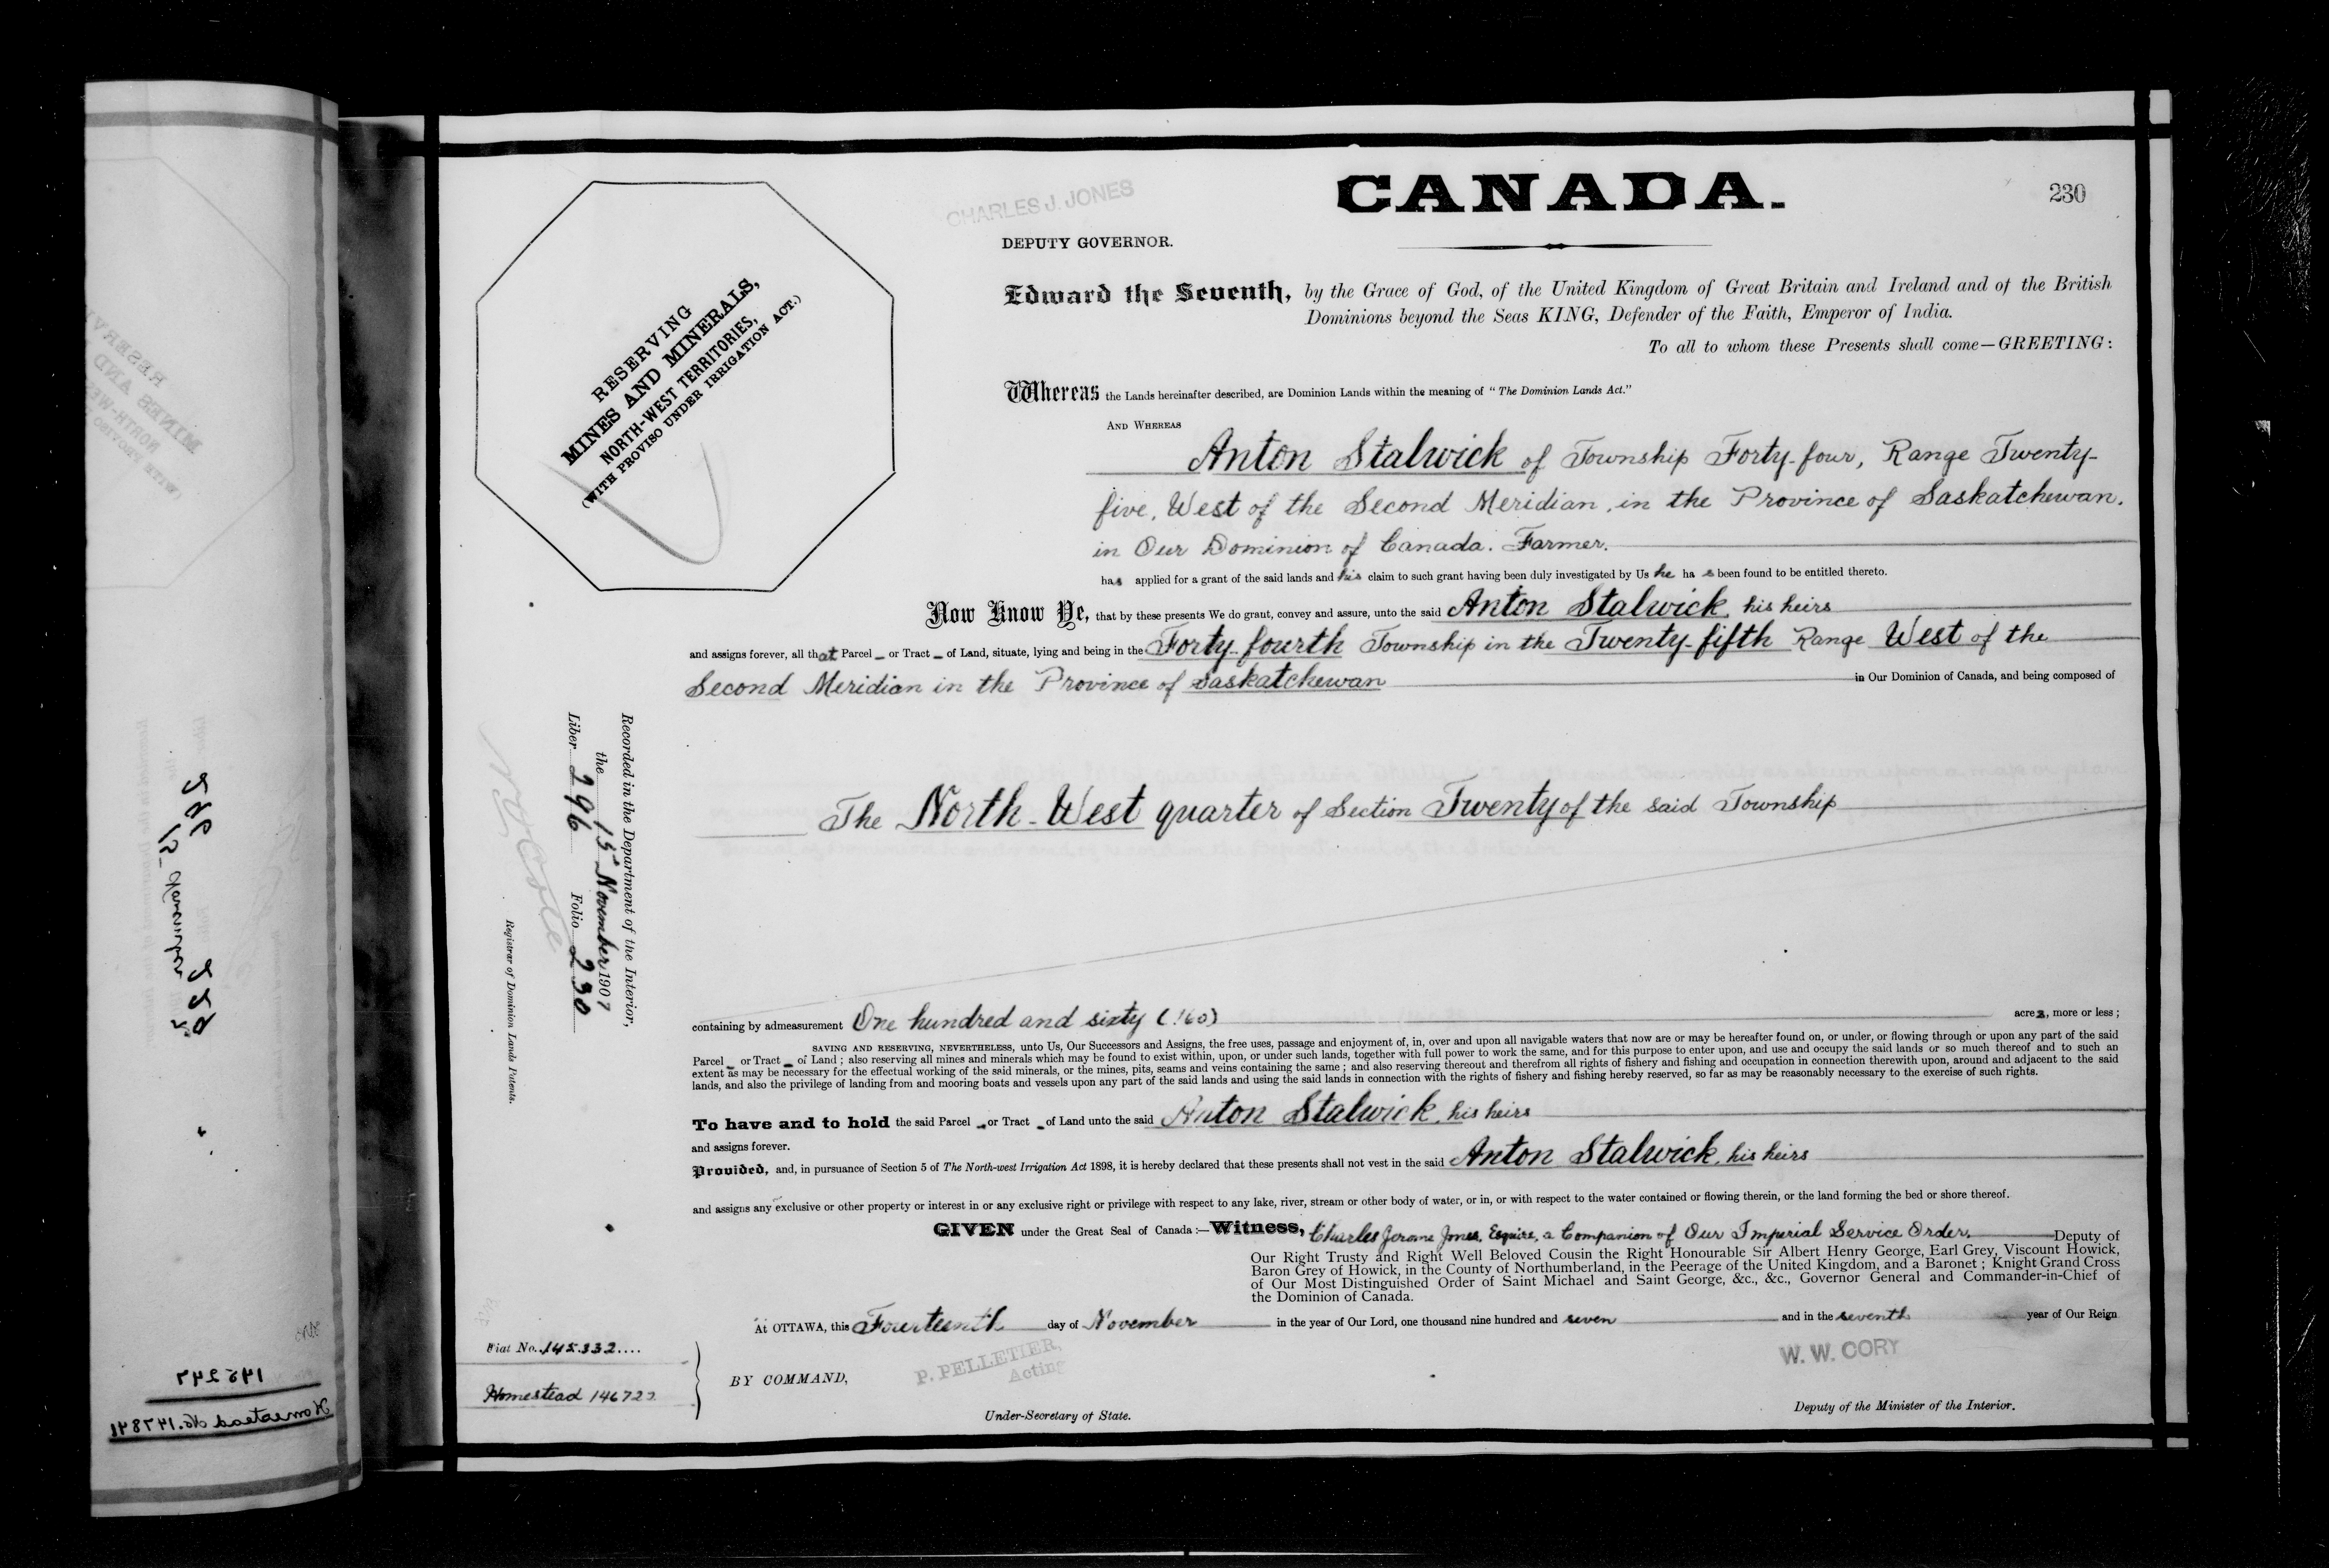 CANADA.
230
CHARLES J. JONES
DEPUTY GOVERNOR.
RESERVING
MINES AND MINERALS,
NORTH-WEST TERRITORIES,
(WITH PROVISO UNDER IRRIGATION ACT.)
Edward the Seventh, by the Grace of God, of the United Kingdom of Great Britain and Ireland and of the British
Dominions beyond the Seas KING, Defender of the Faith, Emperor of India.
To all to whom these Presents shall come—GREETING:
Whereas the Lands hereinafter described, are Dominion Lands within the meaning of "The Dominion Lands Act."
AND WHEREAS
Anton Stalwick of Township Forty-four, Range Twenty-
five, West of the Second Meridian, in the Province of Saskatchewan.
in Our Dominion of Canada. Farmer.
has applied for a grant of the said lands and his claim to such grant having been duly investigated by Us he has been found to be entitled thereto.
Now Know Ye, that by these presents We do grant, convey and assure, unto the said Anton Stalwick, his heirs
and assigns forever, all that Parcel or Tract of Land, situate, lying and being in the Forty-fourth Township in the Twenty-fifth Range West of the
Second Meridian in the Province of Saskatchewan in Our Dominion of Canada, and being composed of
The North-West quarter of Section Twenty of the said Township
Recorded in the Department of the Interior,
the 15th November 1907
Liber 296 Folio 230
Registrar of Dominion Lands Patents.
containing by admeasurement One hundred and sixty (160) acres, more or less;
SAVING AND RESERVING, NEVERTHELESS, unto Us, Our Successors and Assigns, the free uses, passage and enjoyment of, in, over and upon all navigable waters that now are or may be hereafter found on, or under, or flowing through or upon any part of the said
Parcel or Tract of Land; also reserving all mines and minerals which may be found to exist within, upon, or under such lands, together with full power to work the same, and for this purpose to enter upon, and use and occupy the said lands or so much thereof and to such an
extent as may be necessary for the effectual working of the said minerals, or the mines, pits, seams and veins containing the same; and also reserving thereout and therefrom all rights of fishery and fishing and occupation in connection therewith upon, around and adjacent to the said
lands, and also the privilege of landing from and mooring boats and vessels upon any part of the said lands and using the said lands in connection with the rights of fishery and fishing hereby reserved, so far as may be reasonably necessary to the exercise of such rights.
To have and to hold the said Parcel or Tract of Land unto the said Anton Stalwick, his heirs
and assigns forever.
Provided, and, in pursuance of Section 5 of The North-west Irrigation Act 1898, it is hereby declared that these presents shall not vest in the said Anton Stalwick, his heirs
and assigns any exclusive or other property or interest in or any exclusive right or privilege with respect to any lake, river, stream or other body of water, or in, or with respect to the water contained or flowing therein, or the land forming the bed or shore thereof.
GIVEN under the Great Seal of Canada:—Witness, Charles Jerome Jones, Esquire, a Companion of Our Imperial Service Order, Deputy of
Our Right Trusty and Right Well Beloved Cousin the Right Honourable Sir Albert Henry George, Earl Grey, Viscount Howick,
Baron Grey of Howick, in the County of Northumberland, in the Peerage of the United Kingdom, and a Baronet; Knight Grand Cross
of Our Most Distinguished Order of Saint Michael and Saint George, &c., &c., Governor General and Commander-in-Chief of
the Dominion of Canada.
At OTTAWA, this Fourteenth day of November in the year of Our Lord, one thousand nine hundred and seven and in the seventh year of Our Reign
Fiat No. 145332....
Homestead 146722
BY COMMAND,
P. PELLETIER,
Acting
Under-Secretary of State.
W. W. CORY
Deputy of the Minister of the Interior.
145247
Homestead No. 147841